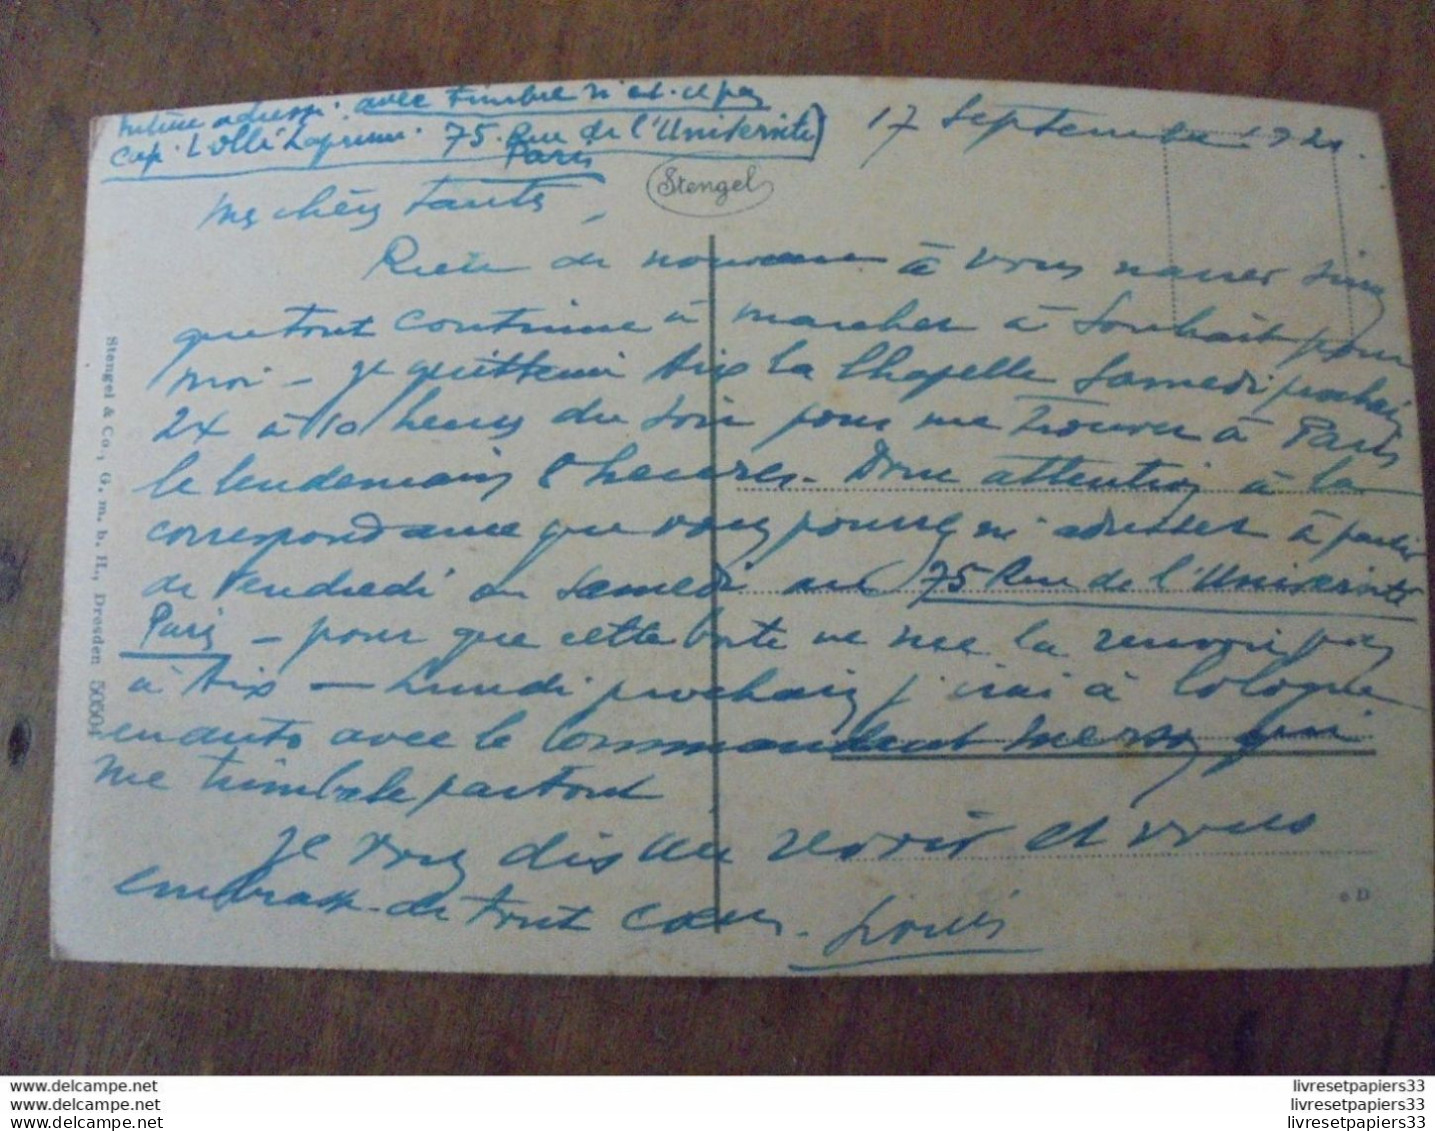 même adresse : avec timbre n'est-ce pas
Cap. Lollé Laprune. 75. Rue de l'Université
Paris
17 Septembre 1921.
Stengel
Mes chères Tantes,
Rien de nouveau à vous narrer sinon
que tout continue à marcher à souhait pour
moi - Je quitterai Aix la Chapelle Samedi prochain
24 à 10 heures du soir pour me trouver à Paris
le lendemain 8 heures. Donc attention à la
correspondance que vous pourrez m'adresser à partir
de Vendredi ou Samedi au 75 Rue de l'Université
Paris - pour que cette boîte ne me la renvoie pas
à Aix - Lundi prochain j'irai à Cologne
en auto avec le Commandant qui
me trimbale partout
Je vous dis au revoir et vous
embrasse de tout cœur. Louis
Stengel & Co., G. m. b. H., Dresden 50504
o D
www.delcampe.net
www.delcampe.net
www.delcampe.net
livresetpapiers33
livresetpapiers33
livresetpapiers33